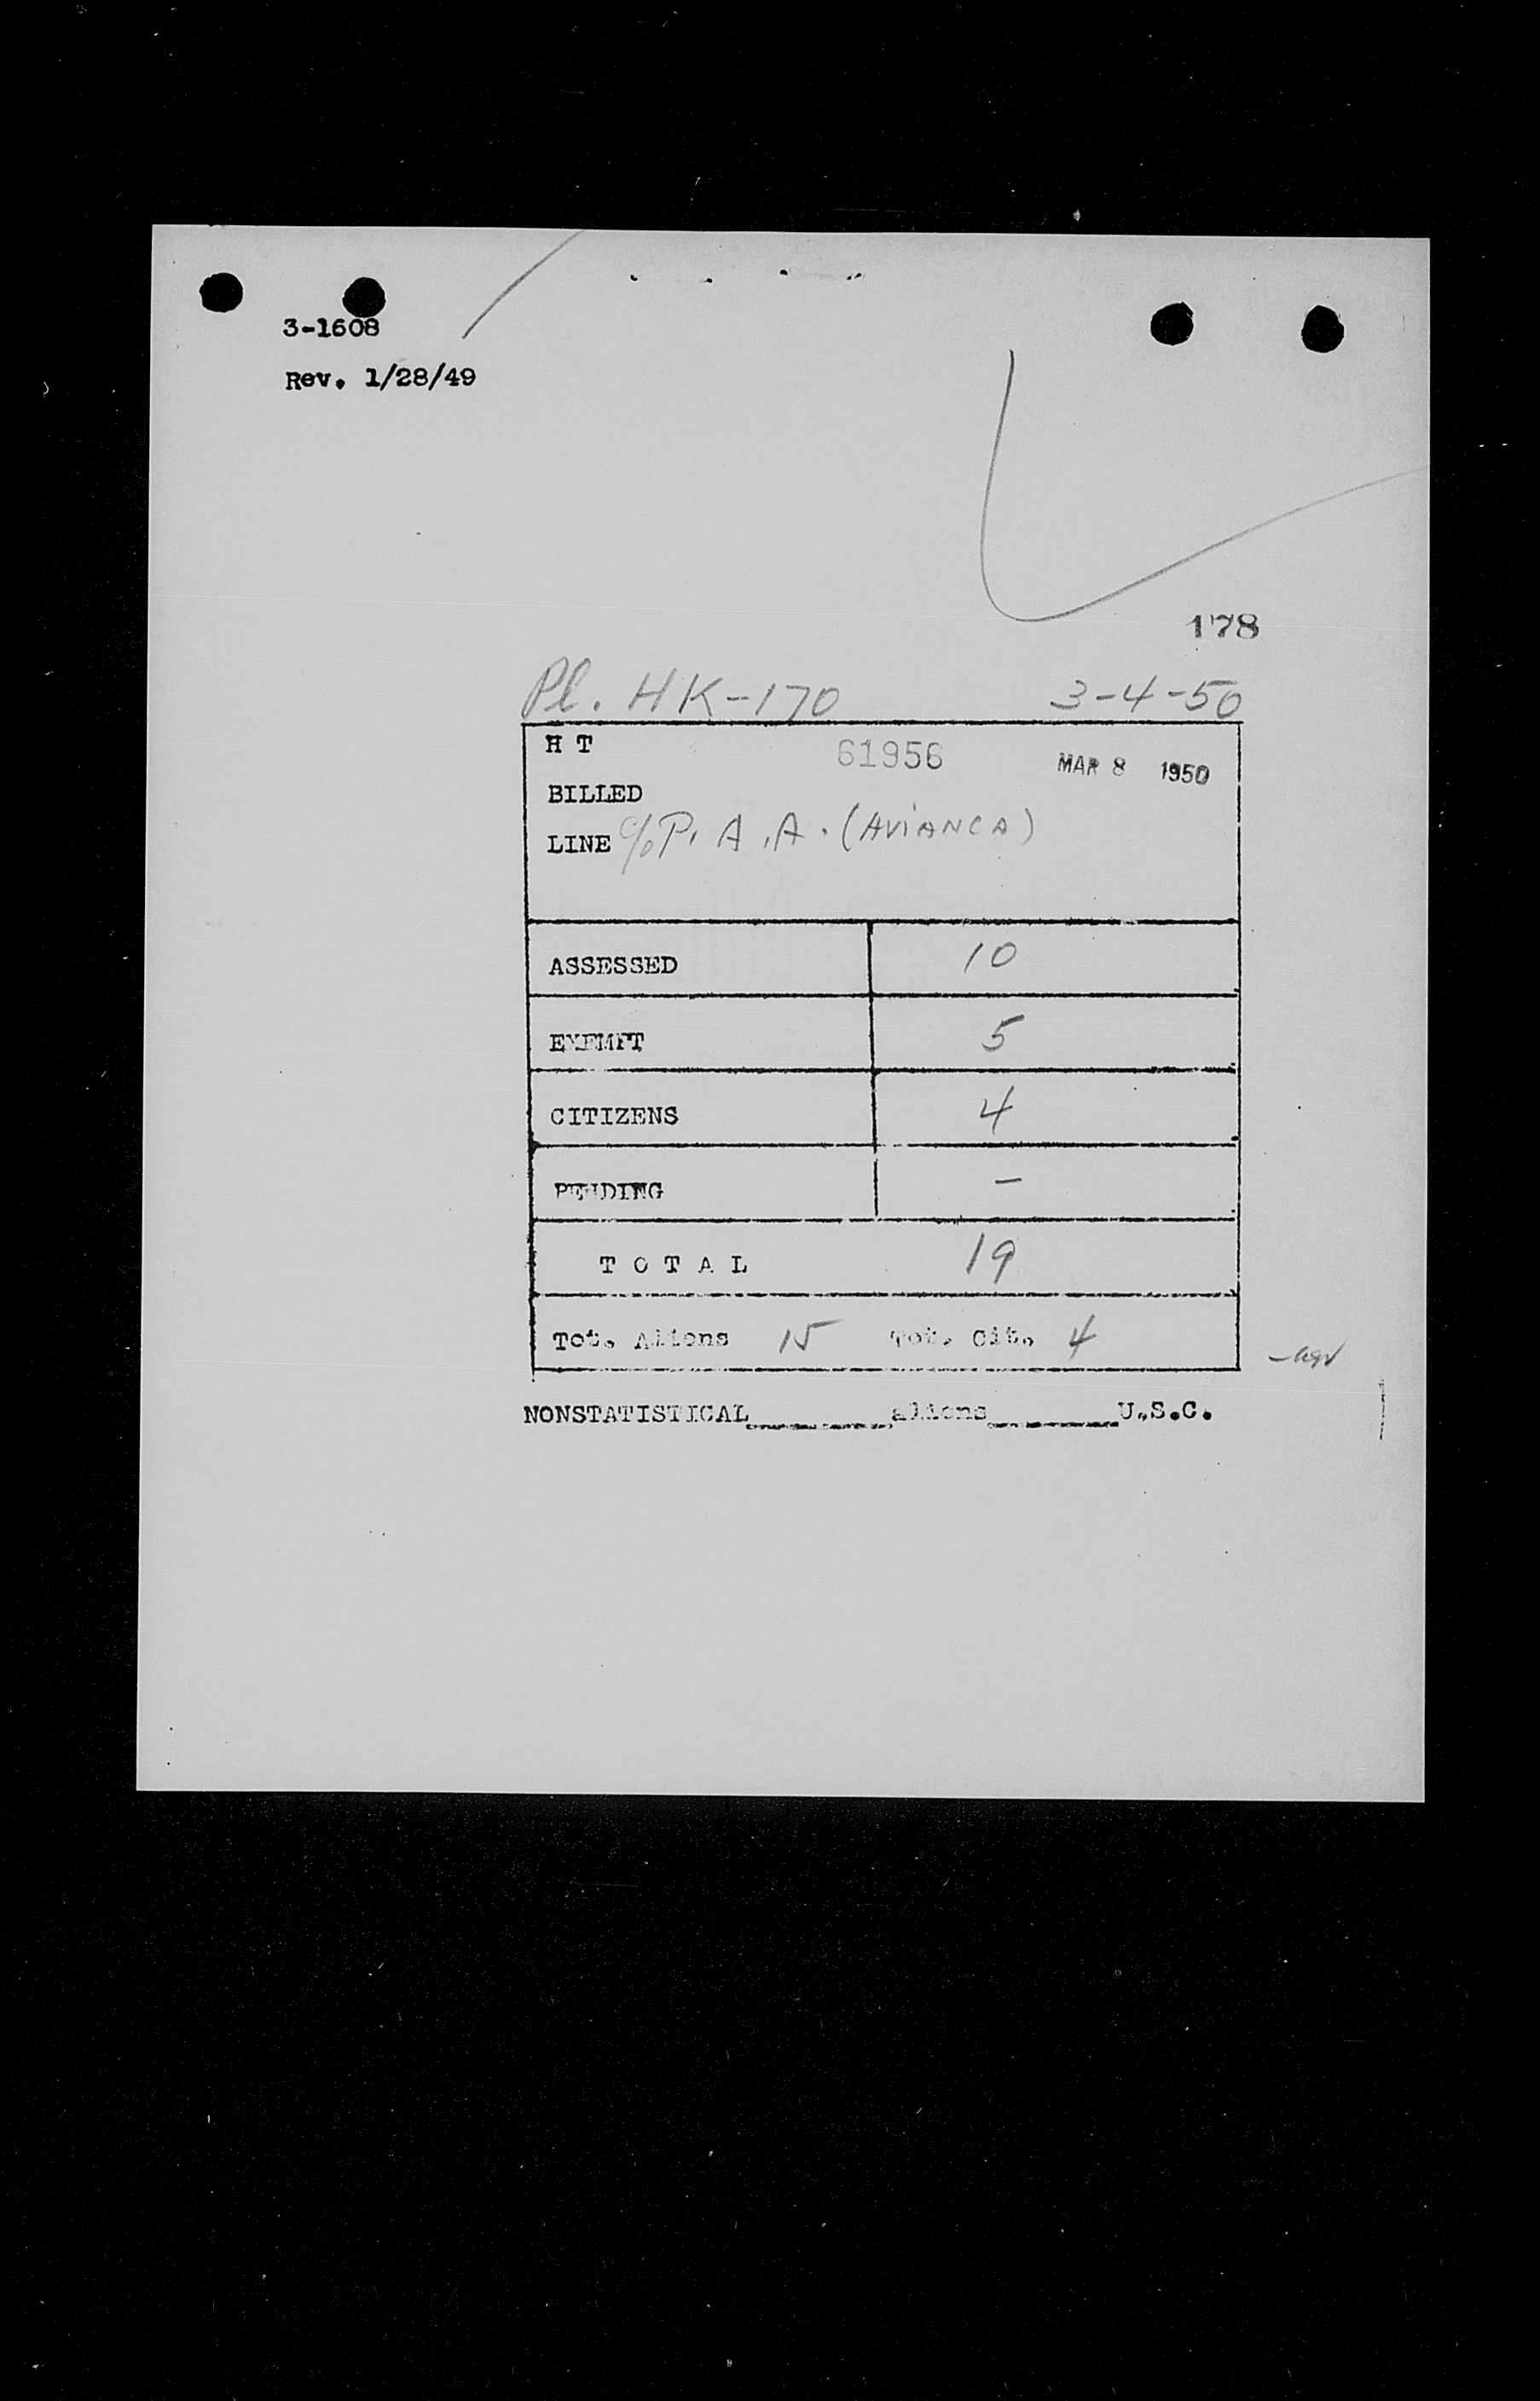 3-1608
Rev. 1/28/49
178
Pl. HK-170 3-4-50
H T 61956 MAR 8 1950
BILLED
LINE c/o P.A.A. (AVIANCA)
ASSESSED 10
EXEMPT 5
CITIZENS 4
PENDING -
T O T A L 19
Tot. Aliens 15 Tot. Cit. 4
NONSTATISTICAL________aliens________U.S.C.